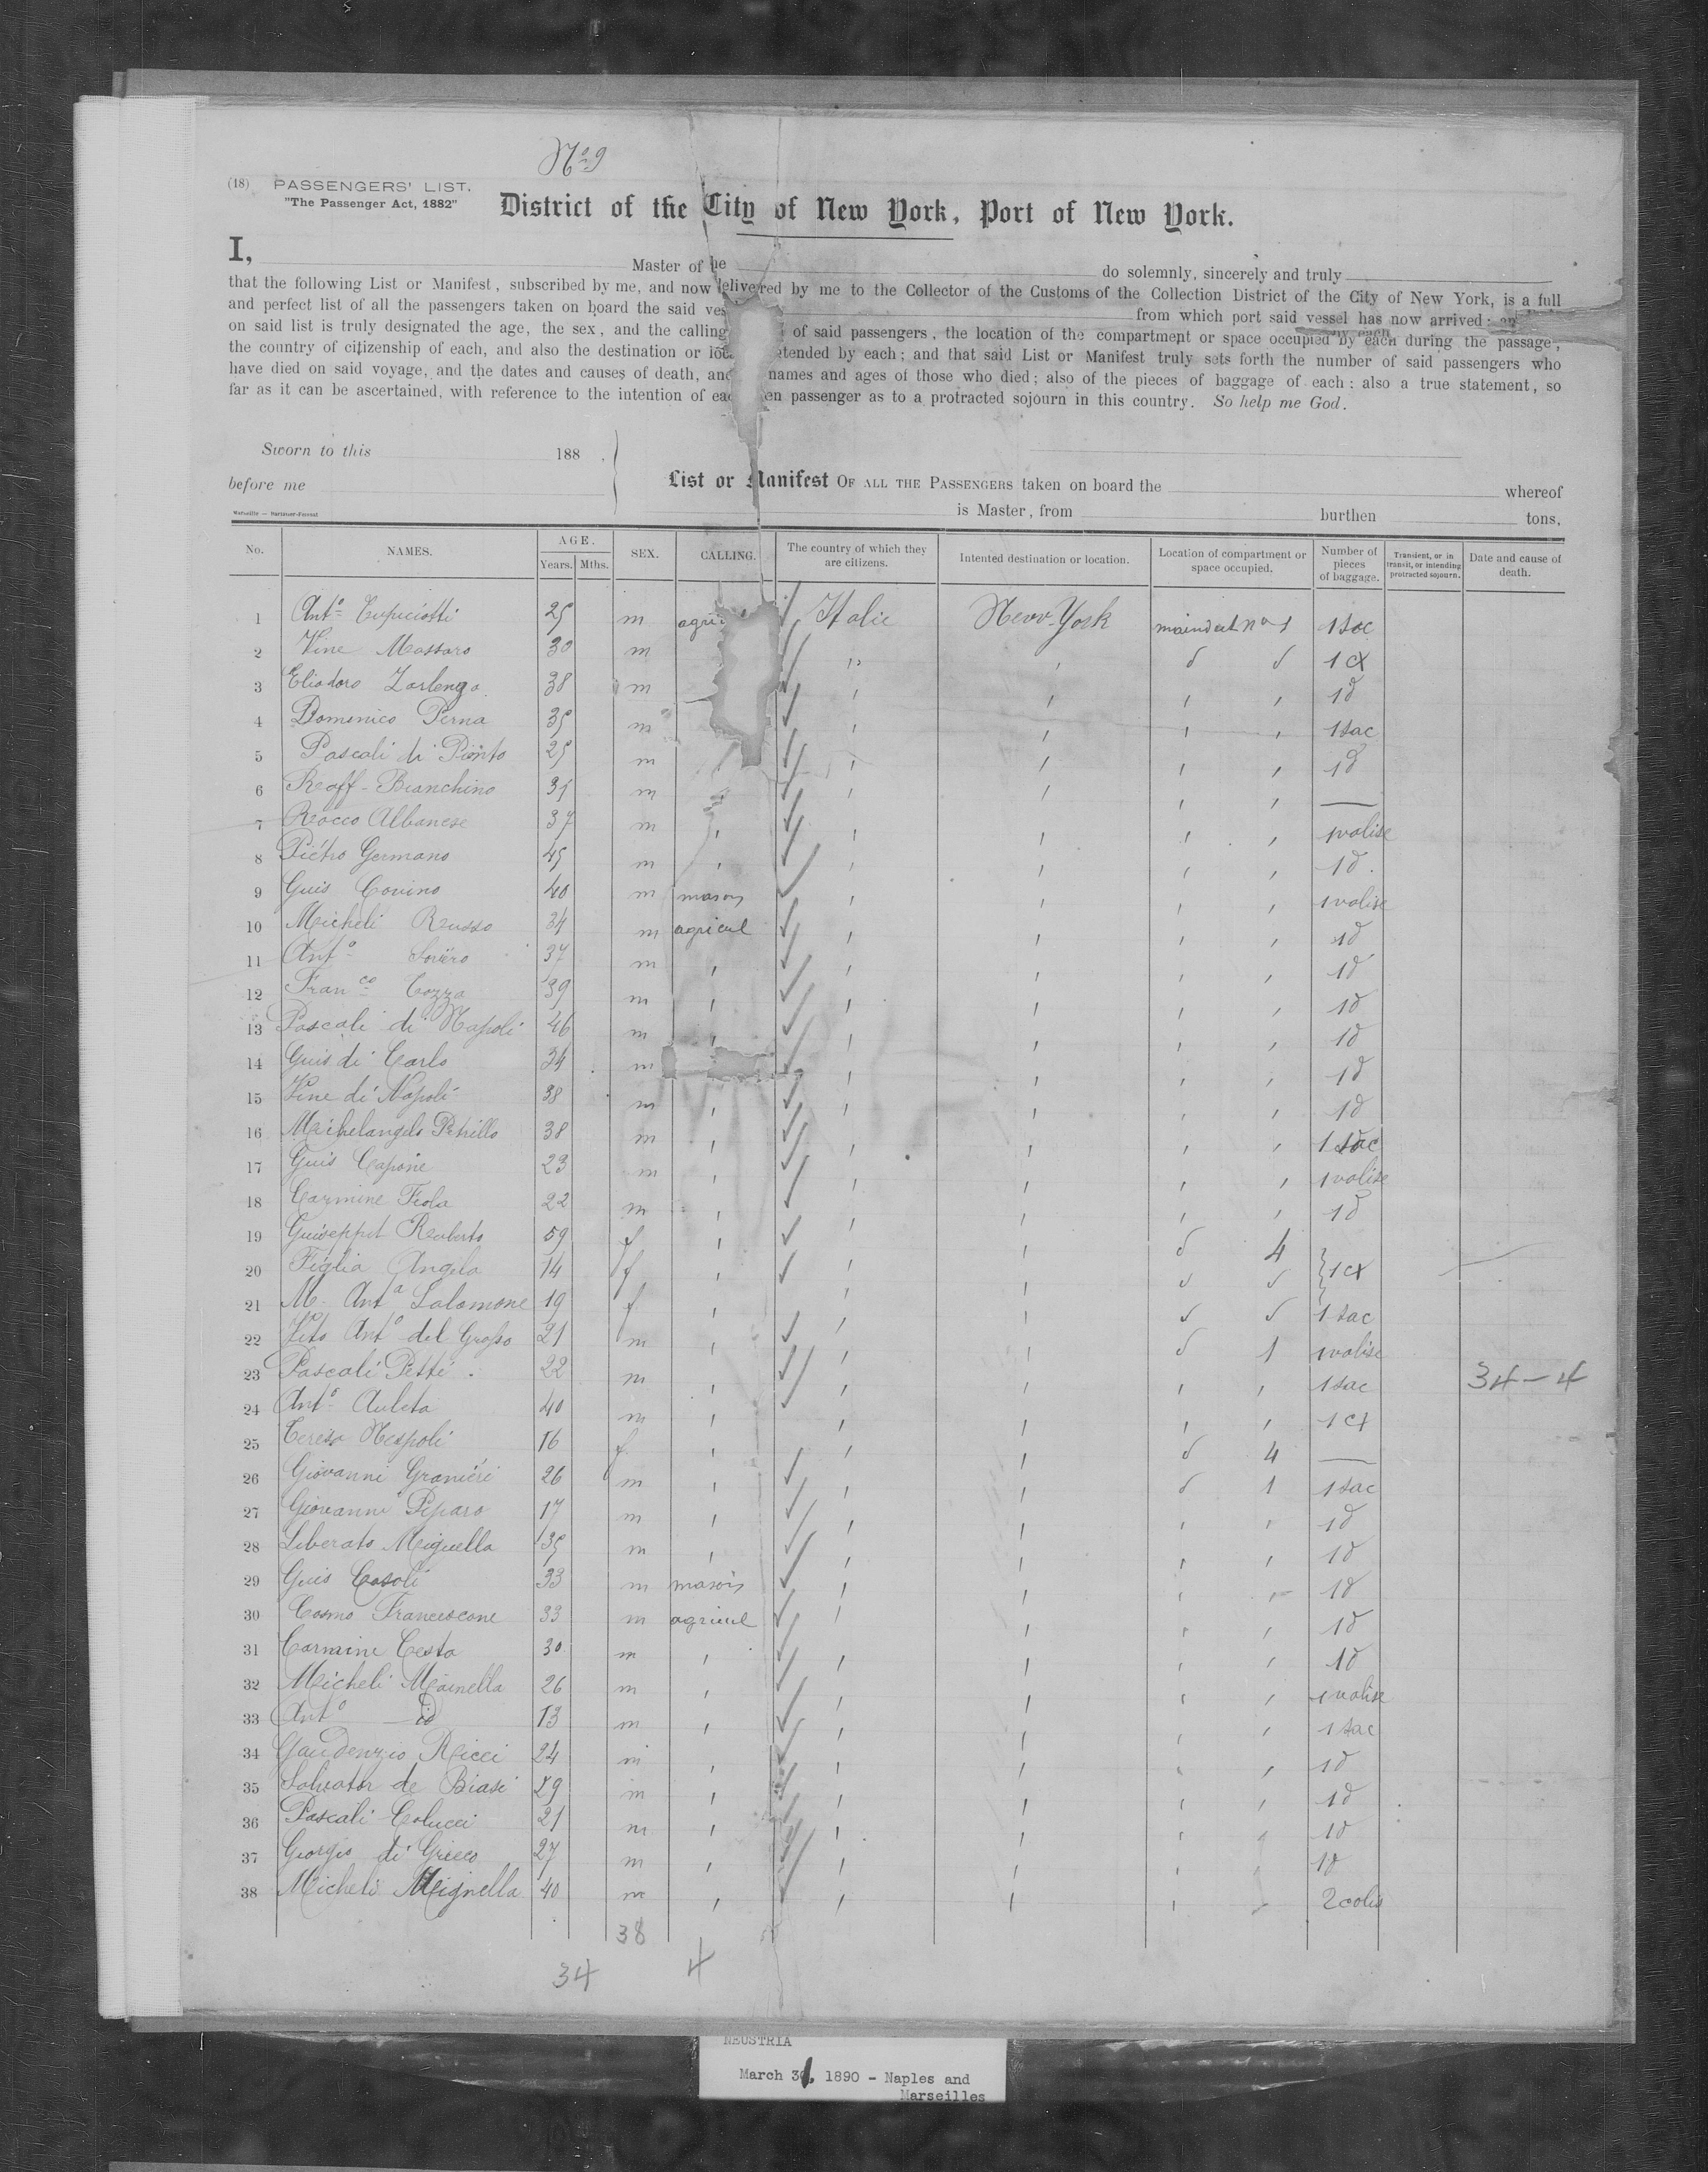 Nº 9
(18) PASSENGERS' LIST.
"The Passenger Act, 1882"
District of the City of New York, Port of New York.
I, Master of he do solemnly, sincerely and truly
that the following List or Manifest, subscribed by me, and now delivered by me to the Collector of the Customs of the Collection District of the City of New York, is a full
and perfect list of all the passengers taken on board the said ves from which port said vessel has now arrived;
on said list is truly designated the age, the sex, and the calling of said passengers, the location of the compartment or space occupied by each during the passage,
the country of citizenship of each, and also the destination or loc tended by each; and that said List or Manifest truly sets forth the number of said passengers who
have died on said voyage, and the dates and causes of death, and names and ages of those who died; also of the pieces of baggage of each: also a true statement, so
far as it can be ascertained, with reference to the intention of eac en passenger as to a protracted sojourn in this country. So help me God.
Sworn to this 188 .
before me
List or Manifest OF ALL THE PASSENGERS taken on board the whereof
is Master, from burthen tons.
No. NAMES. AGE. Years. Mths. SEX. CALLING. The country of which they are citizens. Intented destination or location. Location of compartment or space occupied. Number of pieces of baggage. Transient, or in transit, or intending protracted sojourn. Date and cause of death.
1 Antº Cupiciotti 25 m agri Italie New-York maindeck nº 1 1 sac
2 Vine Massaro 30 m " ' d d 1 cx
3 Eliodoro Zarlenga 38 m ' ' ' ' 1 d
4 Domenico Perna 35 m ' ' ' ' 1 sac
5 Pascali di Pionto 25 m ' ' ' ' ' 1 d
6 Raff- Bianchino 35 m ' ' ' ' ' —
7 Rocco Albanese 37 m ' ' ' ' ' 1 valise
8 Piétro Germano 45 m ' ' ' ' ' 1 d
9 Guis Covino 40 m mason ' ' ' ' 1 valise
10 Micheli Russo 34 m agricul ' ' ' ' 1 d
11 Antº Soviero 37 m ' ' ' ' ' 1 d
12 Franco Cozza 39 m ' ' ' ' ' 1 d
13 Pascali di Napoli 46 m ' ' ' ' ' 1 d
14 Guis di Carlo 34 m ' ' ' ' 1 d
15 Vine di Napoli 38 m ' ' ' ' ' 1 d
16 Michelangelo Petrillo 38 m ' ' ' ' ' 1 sac
17 Guis Capone 23 m ' ' ' ' ' 1 valise
18 Carmine Feola 22 m ' ' ' ' ' 1 d
19 Guiseppet Roberto 59 f ' ' ' d 4
20 Figlia Angela 14 f ' ' ' d d } 1 cx
21 M. Antª Salomone 19 f ' ' ' d d 1 sac
22 Vito Antº del Grosso 21 m ' ' ' d 1 1 valise
23 Pascali Petti 22 m ' ' ' ' ' 1 sac 34-4
24 Antº Auleta 40 m ' ' ' ' ' 1 cx
25 Teresa Nespoli 16 f ' ' ' d 4 —
26 Giovanni Granieri 26 m ' ' ' d 1 1 sac
27 Giovanni Piparo 17 m ' ' ' ' ' 1 d
28 Liberato Miguella 35 m ' ' ' ' ' 1 d
29 Guis Casoli 33 m mason ' ' ' ' 1 d
30 Cosmo Francescone 33 m agricul ' ' ' ' 1 d
31 Carmine Cesta 30 m ' ' ' ' ' 1 d
32 Micheli Mainella 26 m ' ' ' ' ' 1 valise
33 Antº id 13 m ' ' ' ' ' 1 sac
34 Gaudenzio Ricci 24 m ' ' ' ' ' 1 d
35 Salvator de Biasi 29 m ' ' ' ' ' 1 d
36 Pascali Colucci 21 m ' ' ' ' ' 1 d
37 Giorgio di Grieco 27 m ' ' ' ' ' 1 d
38 Micheli Mignella 40 m ' ' ' ' ' 2 colis
38
34 4
NEUSTRIA
March 31, 1890 - Naples and
Marseilles